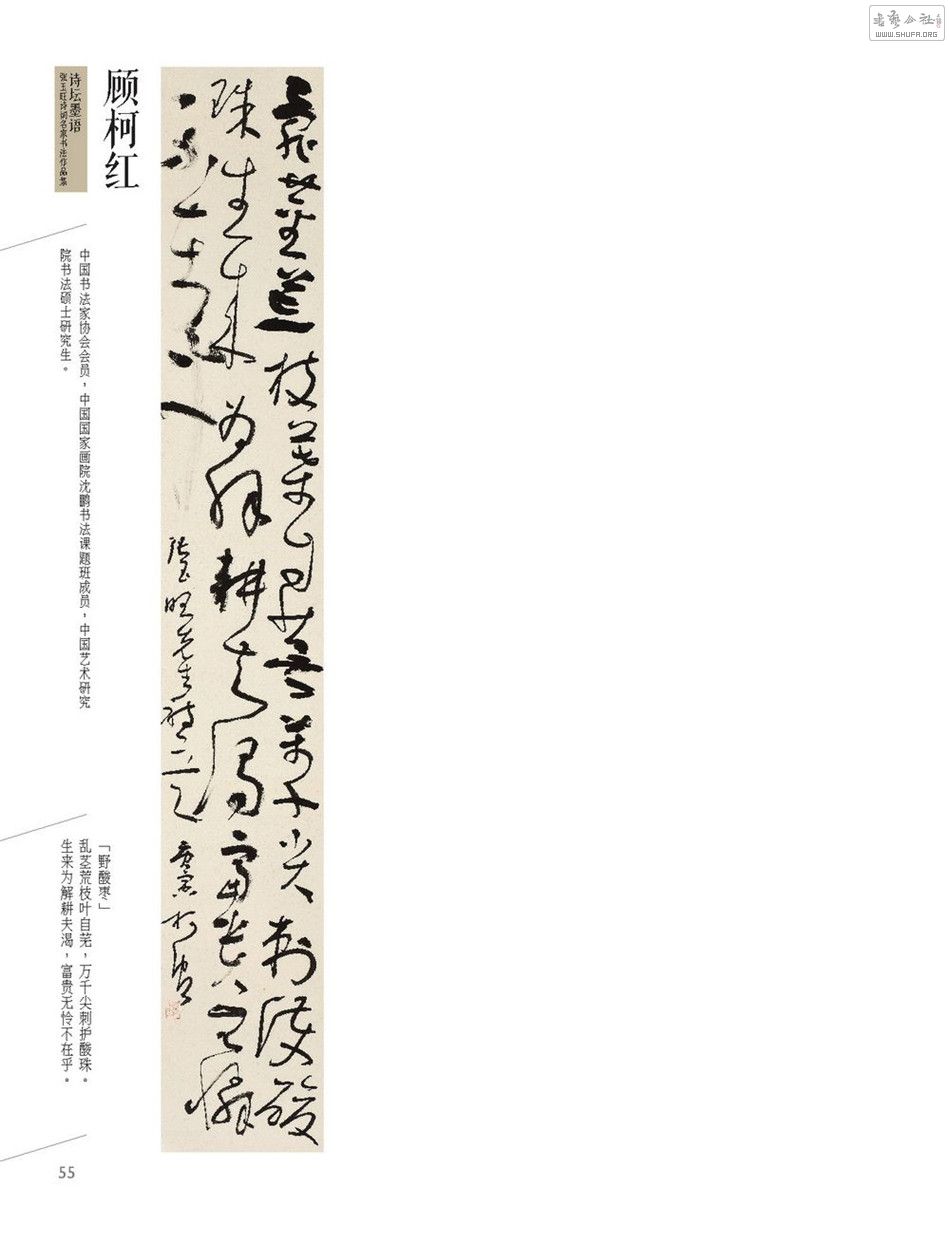 书艺公社
WWW.SHUFA.ORG
顾柯红
诗坛墨语
张玉旺诗词名家书法作品集
中国书法家协会会员，中国国家画院沈鹏书法课题班成员，中国艺术研究
院书法硕士研究生。
乱茎荒枝叶自芜万千尖刺护酸
珠生来为解耕夫渴富贵无怜
不在乎
张玉旺先生诗二
「野酸枣」
乱茎荒枝叶自芜，万千尖刺护酸珠。
生来为解耕夫渴，富贵无怜不在乎。
55